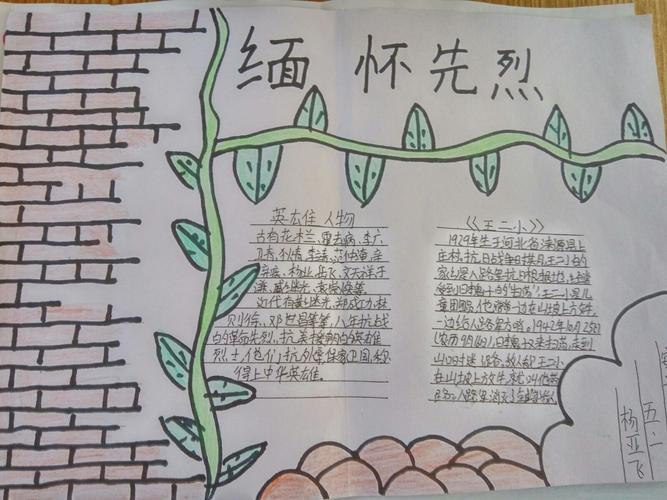 缅怀先烈
英雄佳人物
古有花木兰、霍去病、李广、
卫青、狄青、李靖、范仲淹、辛
弃疾、杨业、岳飞、文天祥于
谦、戚继光、袁崇焕等
近代有戚继光、郑成功、林
则徐、邓世昌等等八年抗战
的革命先烈。抗美援朝的英雄
烈士,他们抗外掌保家卫国,称
得上中华英雄。
《王二小》
1929年生于河北省涞源县上
庄村,抗日战争时期王二小的
家乡是八路军抗日根据地,
受到日的生荡"王二小是儿
童团员,他一边在山坡上放牛,
一边给八路军放哨。1942年10月25日
(农历9月16日)日军又来扫荡,走到
山口时迷了路,敌人看见王二小
在山坡上放牛,就叫他带
路。八路军消灭了全部敌人
五、二
杨亚飞